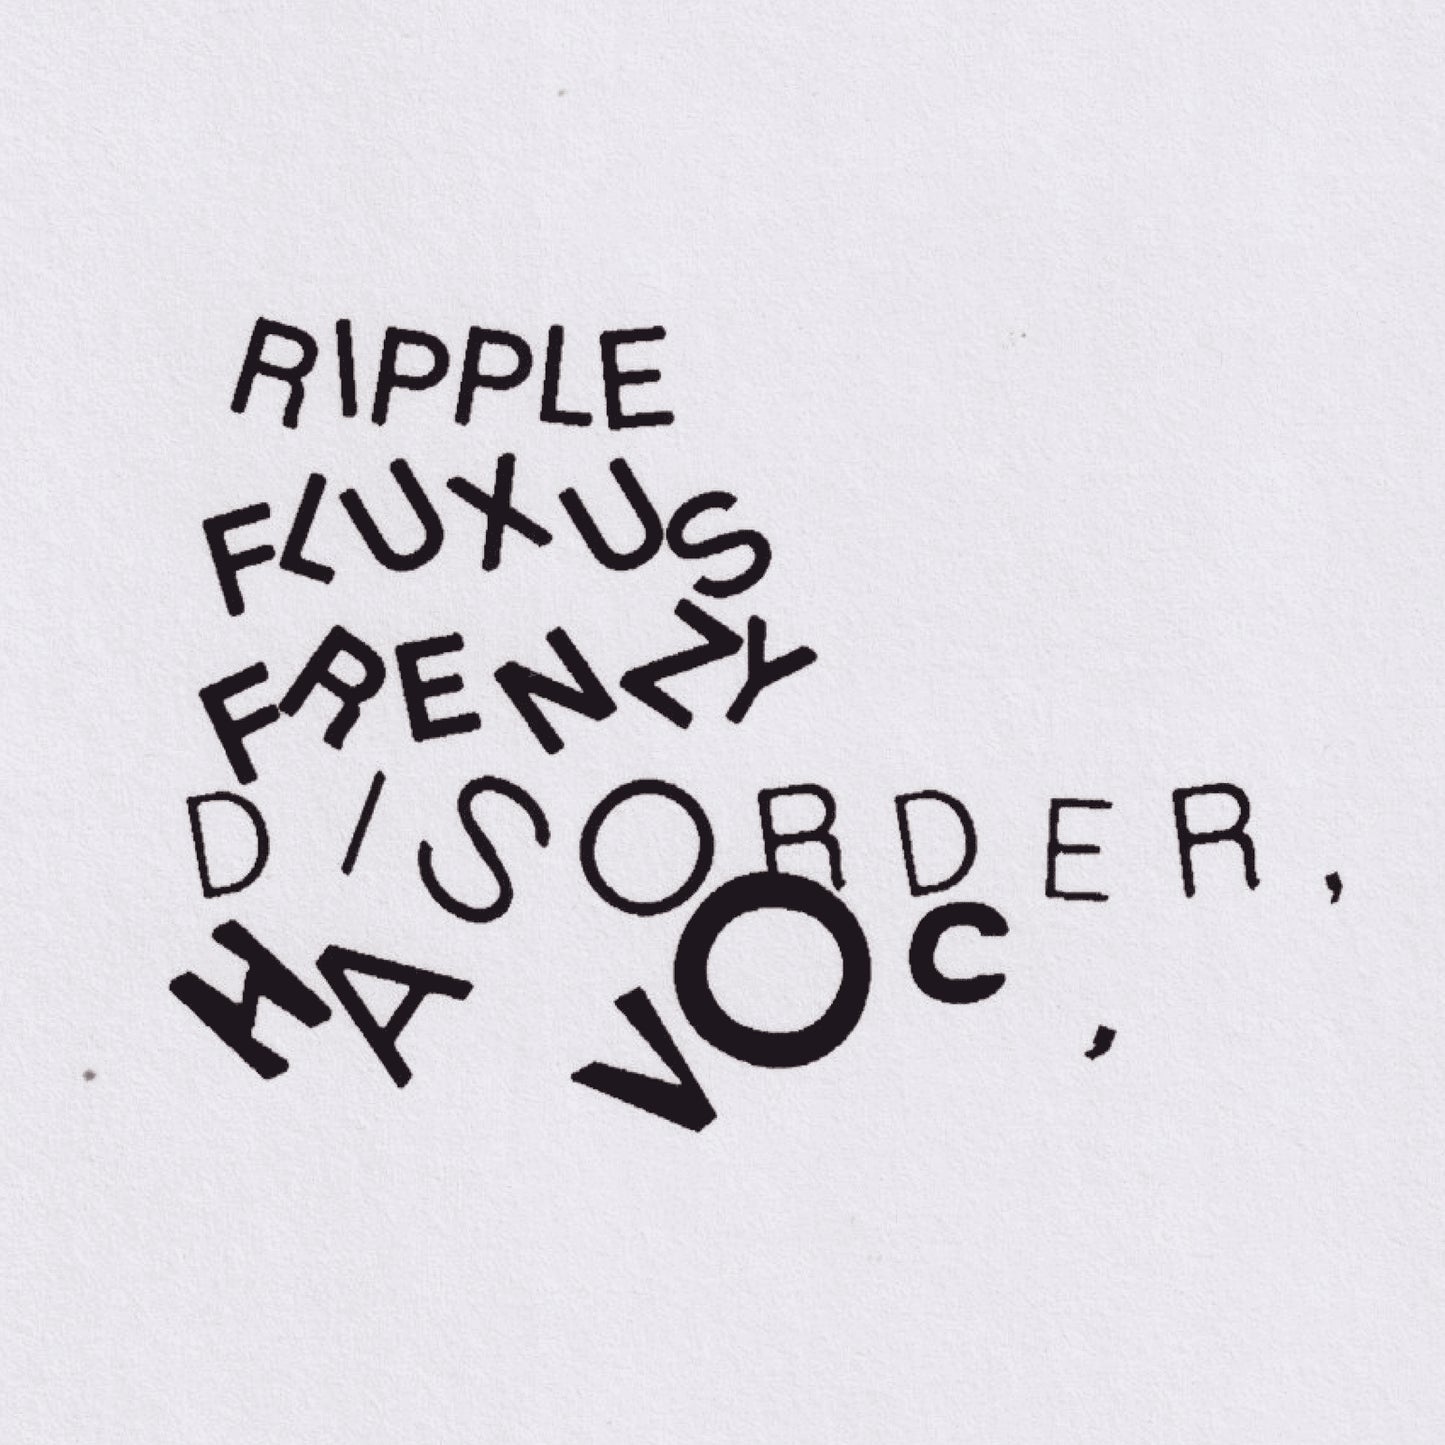 RIPPLE
FLUXUS
FRENZY
DISORDER,
HAVOC,